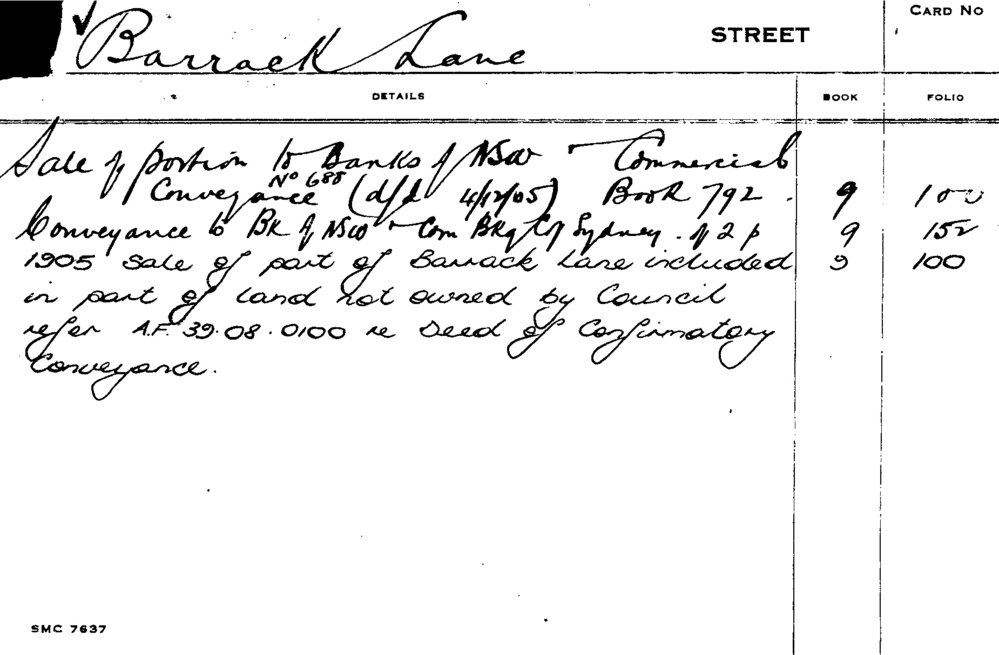 CARD NO
Barrack Lane STREET
DETAILS BOOK FOLIO
Sale of portion to Banks of NSW & Commercial
Conveyance No 688 (d/d 4/12/05) Book 792. 9 100
Conveyance to Bk of NSW & Com Bkg Coy Sydney. of 2 p 9 152
1905 Sale of part of Barrack Lane included 9 100
in part of land not owned by Council
refer A.F. 39.08.0100 re Deed of Confirmatory
Conveyance.
SMC 7637